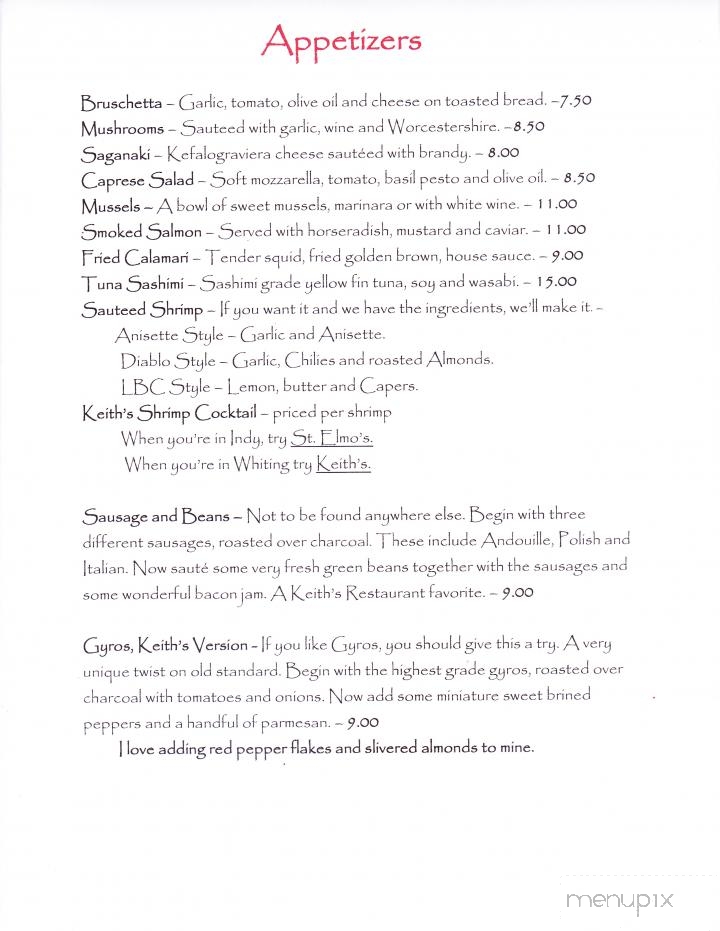 Appetizers
Bruschetta – Garlic, tomato, olive oil and cheese on toasted bread. –7.50
Mushrooms – Sauteed with garlic, wine and Worcestershire. –8.50
Saganaki – Kefalograviera cheese sautéed with brandy. – 8.00
Caprese Salad – Soft mozzarella, tomato, basil pesto and olive oil. – 8.50
Mussels – A bowl of sweet mussels, marinara or with white wine. – 11.00
Smoked Salmon – Served with horseradish, mustard and caviar. – 11.00
Fried Calamari – Tender squid, fried golden brown, house sauce. – 9.00
Tuna Sashimi – Sashimi grade yellow fin tuna, soy and wasabi. – 15.00
Sauteed Shrimp – If you want it and we have the ingredients, we'll make it. –
Anisette Style – Garlic and Anisette.
Diablo Style – Garlic, Chilies and roasted Almonds.
LBC Style – Lemon, butter and Capers.
Keith's Shrimp Cocktail – priced per shrimp
When you're in Indy, try St. Elmo's.
When you're in Whiting try Keith's.
Sausage and Beans – Not to be found anywhere else. Begin with three
different sausages, roasted over charcoal. These include Andouille, Polish and
Italian. Now sauté some very fresh green beans together with the sausages and
some wonderful bacon jam. A Keith's Restaurant favorite. – 9.00
Gyros, Keith's Version - If you like Gyros, you should give this a try. A very
unique twist on old standard. Begin with the highest grade gyros, roasted over
charcoal with tomatoes and onions. Now add some miniature sweet brined
peppers and a handful of parmesan. – 9.00
I love adding red pepper flakes and slivered almonds to mine.
menupix